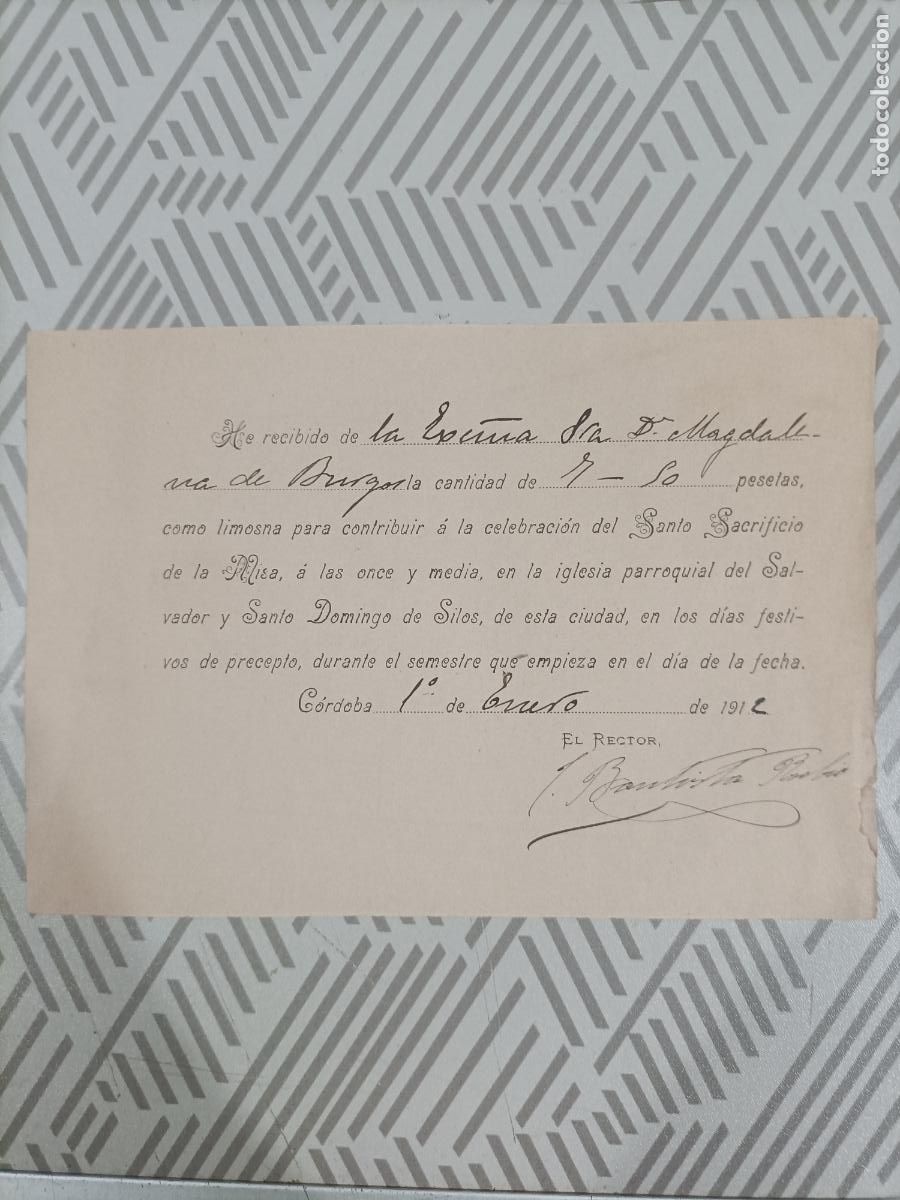 He recibido de la Excma Sra Dª Magdale-
na de Burgos la cantidad de 7-50 pesetas,
como limosna para contribuir á la celebración del Santo Sacrificio
de la Misa, á las once y media, en la iglesia parroquial del Sal-
vador y Santo Domingo de Silos, de esta ciudad, en los días festi-
vos de precepto, durante el semestre que empieza en el día de la fecha.
Córdoba 1º de Enero de 1912
EL RECTOR,
Bautista Rubio
todocoleccion